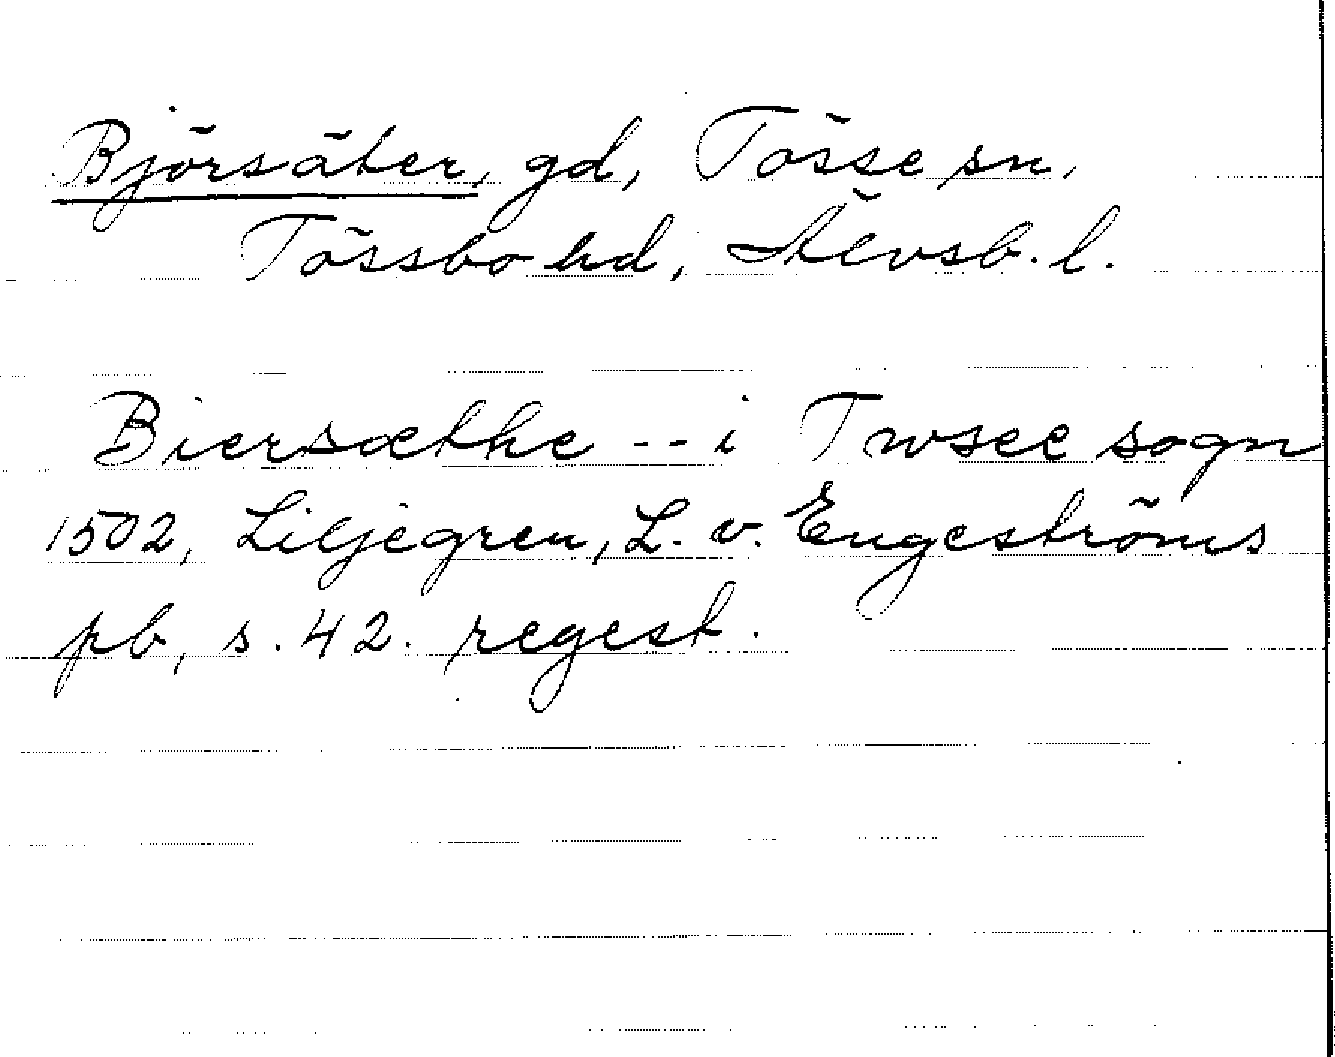 Björsäter, gd, Tösse sn,
Tössbo hd, Älvsb. l.
Biersæthe -- i Twsee sogn
1502, Liljegren, L. v. Engeströms
pb, s. 42. regest.